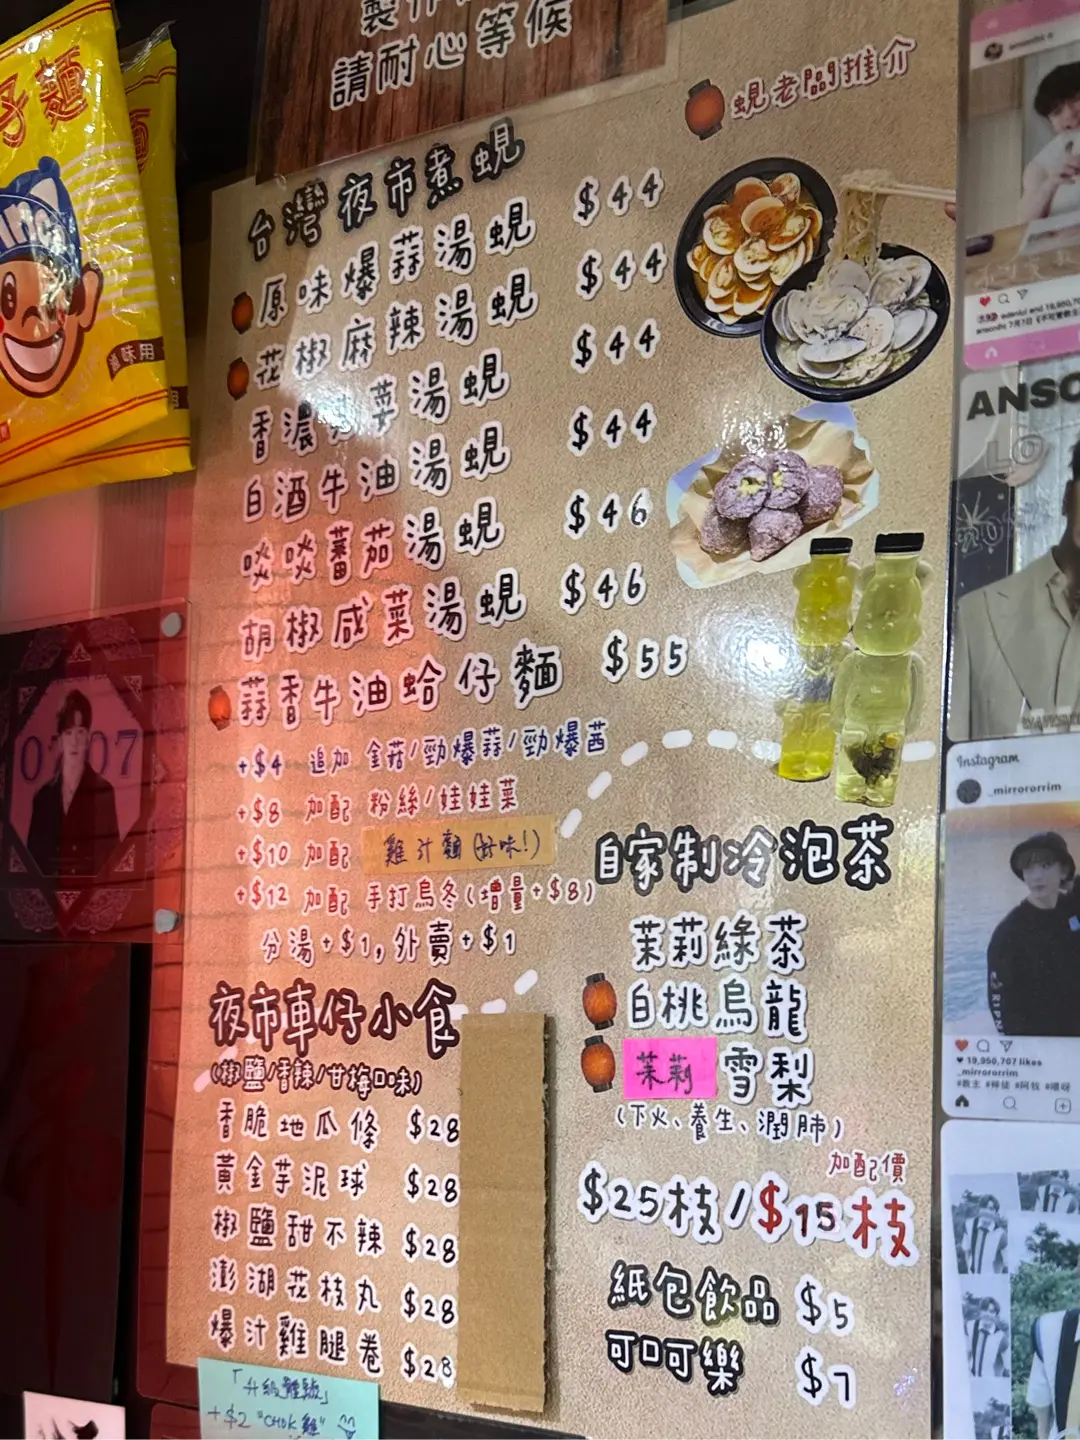 請耐心等候
仔麵
滷味用
蜆老闆推介
台灣夜市煮蜆
原味爆蒜湯蜆 $44
花椒麻辣湯蜆 $44
香濃 菜湯蜆 $44
白酒牛油湯蜆 $44
啖啖蕃茄湯蜆 $46
胡椒咸菜湯蜆 $46
蒜香牛油蛤仔麵 $55
+$4 追加 金菇/勁爆蒜/勁爆茜
+$8 加配 粉絲/娃娃菜
+$10 加配 雞汁麵(好味!)
+$12 加配 手打烏冬(增量+$8)
分湯+$1,外賣+$1
夜市車仔小食
(椒鹽/香辣/甘梅口味)
香脆地瓜條 $28
黃金芋泥球 $28
椒鹽甜不辣 $28
澎湖花枝丸 $28
爆汁雞腿卷 $28
+$2 "CHOK雞"
自家制冷泡茶
茉莉綠茶
白桃烏龍
茉莉雪梨
(下火、養生、潤肺)
加配價
$25枝/$15枝
紙包飲品 $5
可口可樂 $7
ANSO
LO
Instagram
_mirrororrim
19,950,707 likes
_mirrororrim